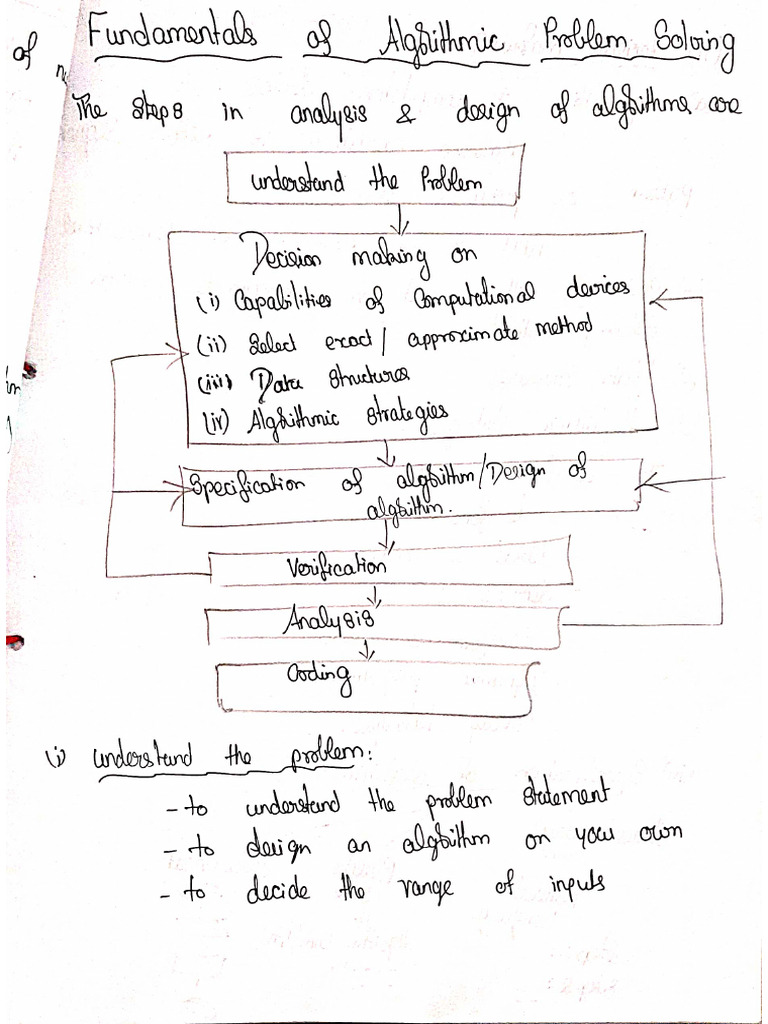 of Fundamentals of Algorithmic Problem Solving
The steps in analysis & design of algorithms are
understand the Problem
Decision making on
(i) Capabilities of Computational devices
(ii) Select exact / approximate method
(iii) Data structures
(iv) Algorithmic strategies
Specification of algorithm/Design of
algorithm.
Verification
Analysis
Coding
in
(i) understand the problem:
- to understand the problem statement
- to design an algorithm on your own
- to decide the range of inputs